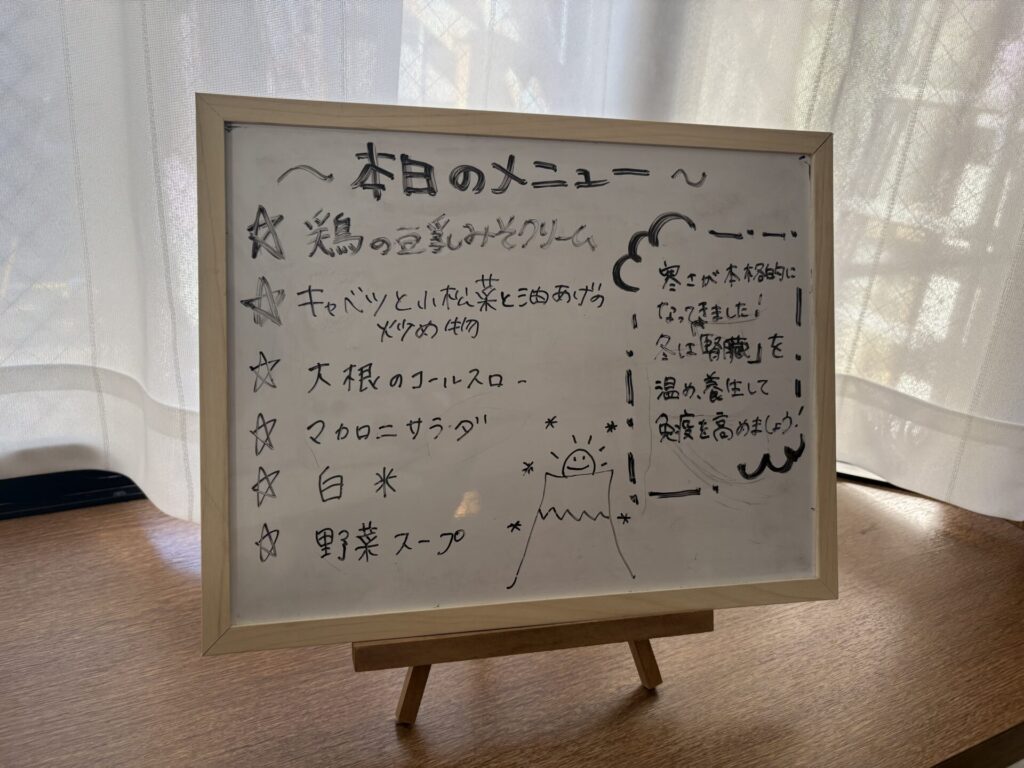 ～本日のメニュー～
☆ 鶏の豆乳みそクリーム
☆ キャベツと小松菜と油あげの
炒め物
☆ 大根のコールスロー
☆ マカロニサラダ
☆ 白米
☆ 野菜スープ
寒さが本格的に
なってきました！
冬は「腎臓」を
温め、養生して
免疫を高めましょう！